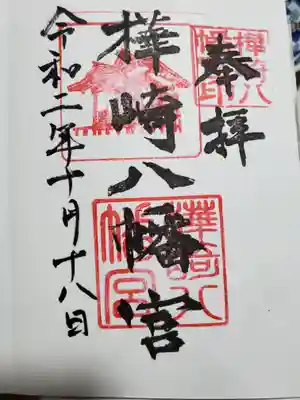 奉拝
樺崎八幡宮
令和二年十月十八日
樺崎八
幡宮